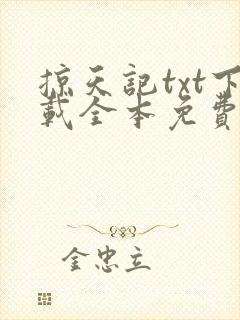 掠天記txt下
載全本免費
金忠立